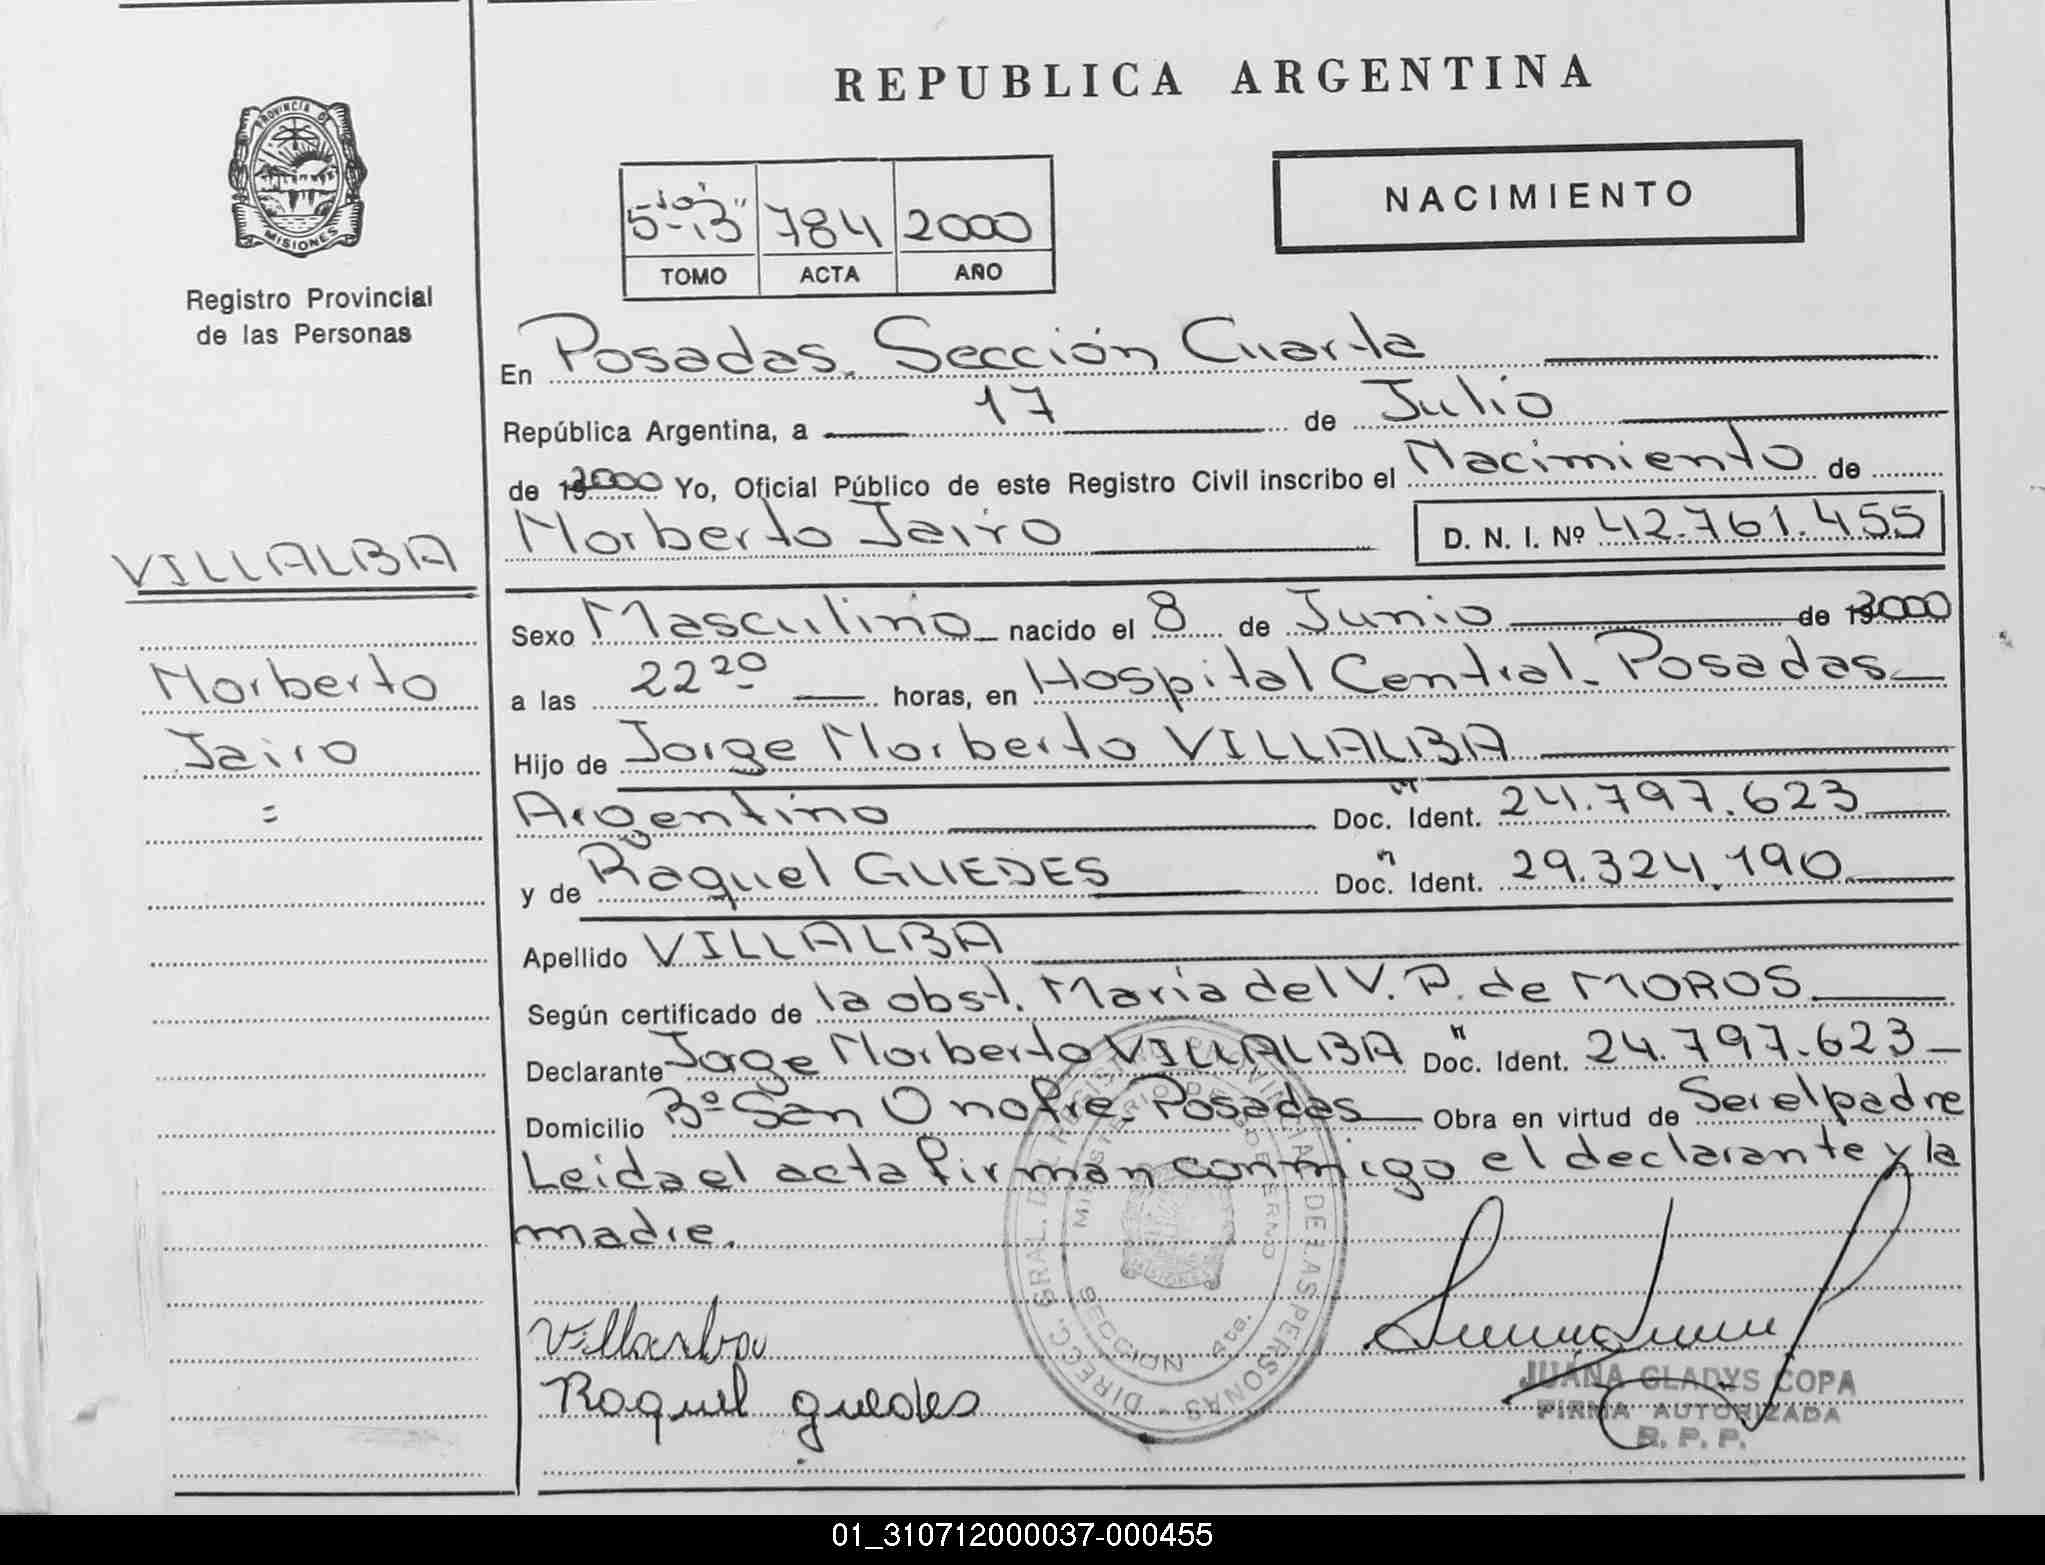 REPUBLICA ARGENTINA
PROVINCIA DE
MISIONES
Registro Provincial
de las Personas
784 2000
TOMO ACTA AÑO
NACIMIENTO
En Posadas. Sección Cuarta
República Argentina, a 17 de Julio
de 2000 Yo, Oficial Público de este Registro Civil inscribo el Nacimiento de
Norberto Jairo D. N. I. Nº 42.761.455
VILLALBA
Norberto
Jairo
=
Sexo Masculino nacido el 8 de Junio de 2000
a las 22 20 horas, en Hospital Central. Posadas
Hijo de Jorge Norberto VILLALBA
Argentino Doc. Ident. 24.797.623
y de Raquel GUEDES Doc. Ident. 29.324.190
Apellido VILLALBA
Según certificado de la obst. Maria del V. P. de MOROS
Declarante Jorge Norberto VILLALBA Doc. Ident. 24.797.623
Domicilio Bº San Onofre. Posadas Obra en virtud de Ser el padre
Leida el acta firman conmigo el declarante y la
madre.
Villalba
Raquel guedes
DIRECC. GRAL. DEL REGISTRO PROVINCIAL DE LAS PERSONAS
MINISTERIO DE GOBIERNO
SECCION 4ta.
JUANA GLADYS COPA
FIRMA AUTORIZADA
R. P. P.
01_310712000037-000455